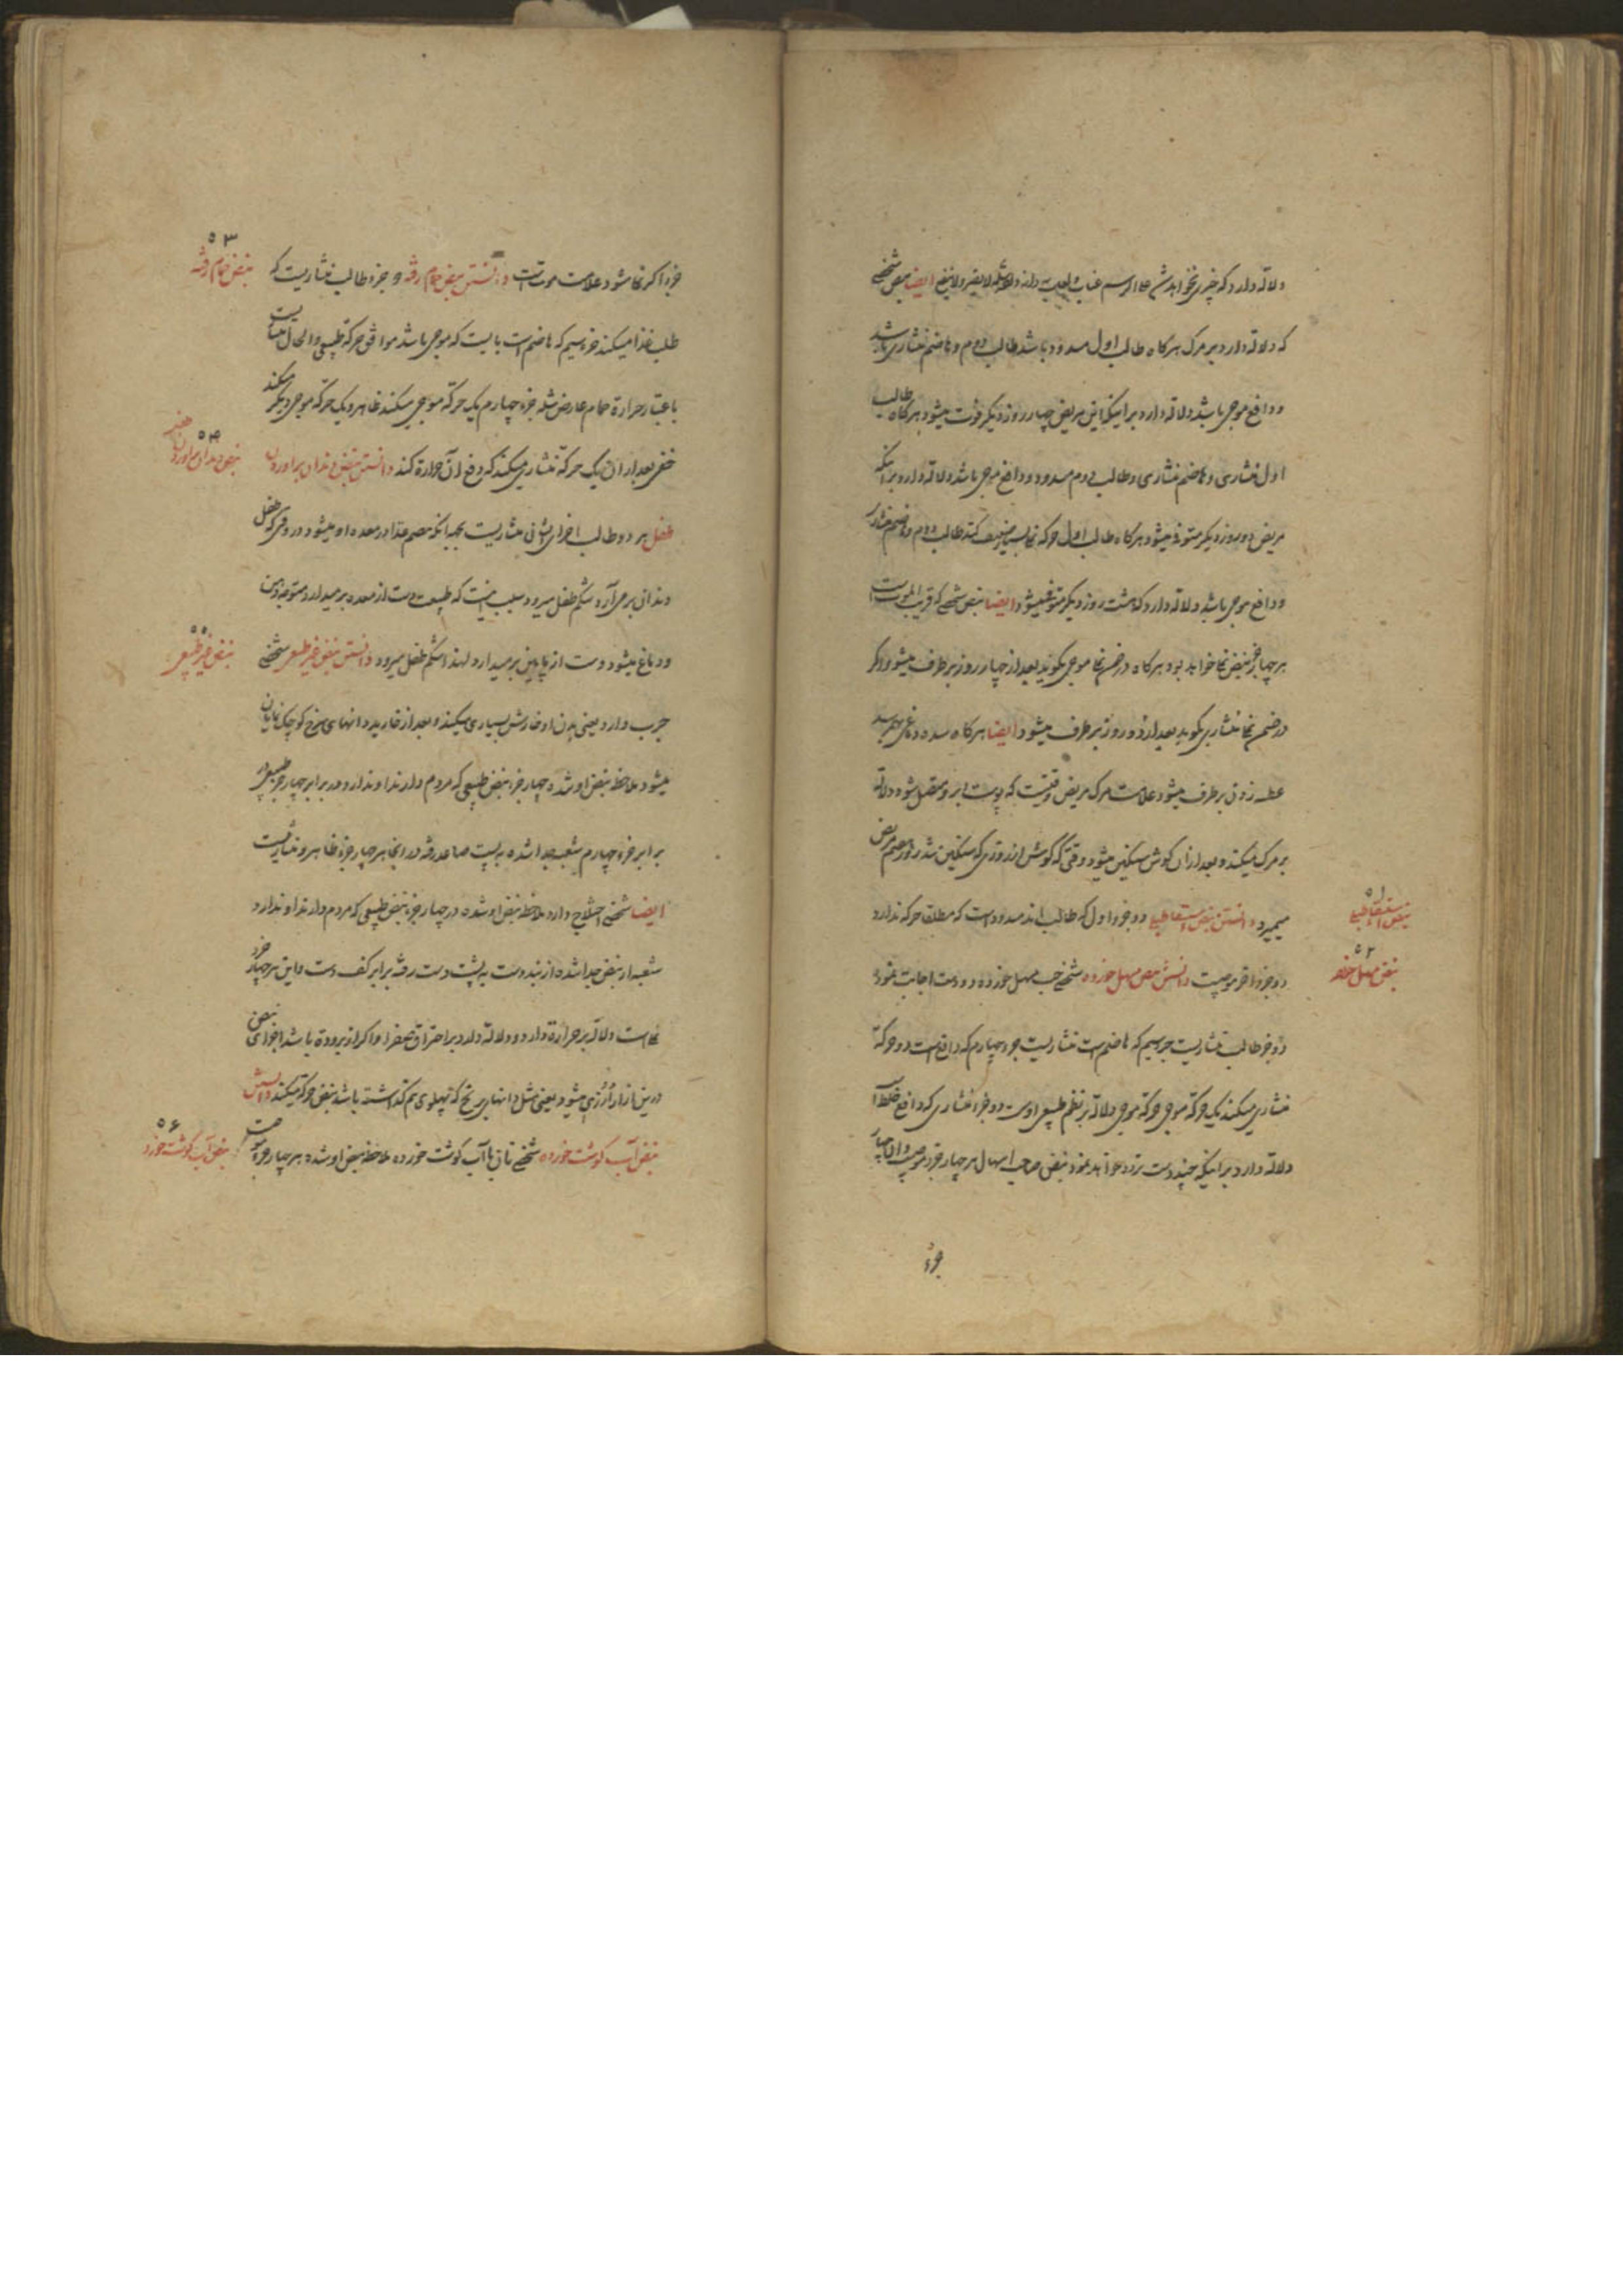 دلالة دارد که چیزی نخواهد شد ایضا نبض شخصی
که دلالة دارد بر مرک هرکاه طالب اول مسدود باشد طالب دوم و هاضم منشاری باشد
و دافع موجی باشد دلالة دارد بر اینکه این مریض چهار روز دیکر فوت میشود هرکاه طالب
اول منشاری و هاضم منشاری و طالب دوم مسدود و دافع موجی باشد دلالة دارد بر اینکه
مریض دو روز دیکر متوفی میشود هرکاه طالب اول حرکة نما بسیار ضعیف کند طالب دوم و هاضم منشاری
و دافع موجی باشد دلالة دارد که هشت روز دیکر متوفی میشود ایضا نبض شخصی که قریب الموت است
هر چهار جزء نبض نما خواهد بود هرکاه در ضمن نما موجی بکوید بعد از چهار روز برطرف میشود و اکر
در ضمن نما منشاری بکوید بعد از دو روز برطرف میشود ایضا هرکاه سده دماغی بهم رسد
عطسه زدن برطرف میشود علامت مرک مریض وقتیست که پوست ابرو متصل شود دلالة
بر مرک میکند و بعد از آن کوش سنکین میشود وقتی که کوش از روزی که سنکین شد روز هفتم مریض
میمیرد دانستن نبض استسقاء طبلی دو جزو اول که طالب اند مسدود است که مطلقا حرکة ندارد
نبض استسقاء طبلی ۵۱
دو جزو آخر موجیست دانستن نبض مسهل خورده شخصی حب مسهل خورده دو دست اجابت نمود
نبض مسهل خورده ۵۲
دو جزء طالب منشاریست جزء سیم که هاضم است منشاریست جزء چهارم که دافع است دو حرکة
منشاری میکند یک حرکة موجی حرکة موجی دلالة بر نظم طبیعی اوست دو جزء منشاری که دافع خلط است
دلالة دارد بر اینکه چند دست تردد خواهد نمود نبض صاحب اسهال هر چهار جزء موجیست و اکر چهار
جزء
جزء اکر نما شود علامت موتست دانستن نبض حمام رفته دو جزء طالب منشاریست که
نبض حمام رفته ۵۳
طلب غذا میکنند جزء سیم که هاضم است بایست که موجی باشد موافق حرکة طبیعی و الحال منشاریست
باعتبار حرارة حمام عارض شده جزء چهارم یک حرکة موجی میکند ظاهر و یک حرکة موجی دیکر میکند
خفی بعد از آن یک حرکة منشاری میکند که دفع آن حرارة کند دانستن نبض دندان برآوردن
نبض دندان برآوردن طفل ۵۴
طفل هر دو طالب اجزای ثانی منشاریست بجهة آنکه هضم غذا در معده او میشود در وقتی که طفل
دندان برمی آرد شکم طفل میرود سبب اینست که طبیعت دست از معده برمیدارد متوجه دهن
و دماغ میشود دست از پایین برمیدارد لهذا شکم طفل میرود دانستن نبض غیر طبیعی شخصی
نبض غیر طبیعی ۵۵
جرب دارد یعنی بدن او خارش بسیاری میکند و بعد از خاریدن دانهای سرخ کوچک نمایان
میشود ملاحظه نبض او شده چهار جزء نبض طبیعی که مردم دارند او ندارد و در برابر چهار جزء طبیعی
برابر جزء چهارم شعبه جدا شده به پشت ساعد رفته در انجا هر چهار جزء ظاهر و منشاریست
ایضا شخصی اختلاج دارد ملاحظه نبض او شده در چهار جزء نبض طبیعی که مردم دارند او ندارد
شعبه از نبض جدا شده از بند دست به پشت دست رفته برابر کف دست و این هر چهار جزء
نماست دلالة بر حرارة دارد و دلالة دارد بر احتراق صفرا و اکر از برودة باشد اجزای نبض
درین ازار ارزی میشود یعنی مثل دانهای برنج که پهلوی هم کذاشته باشد نبض حرکة میکند دانستن
نبض آب کوشت خورده شخصی نان با آب کوشت خورده ملاحظه نبض او شده هر چهار جزء
نبض آب کوشت خورده ۵۶